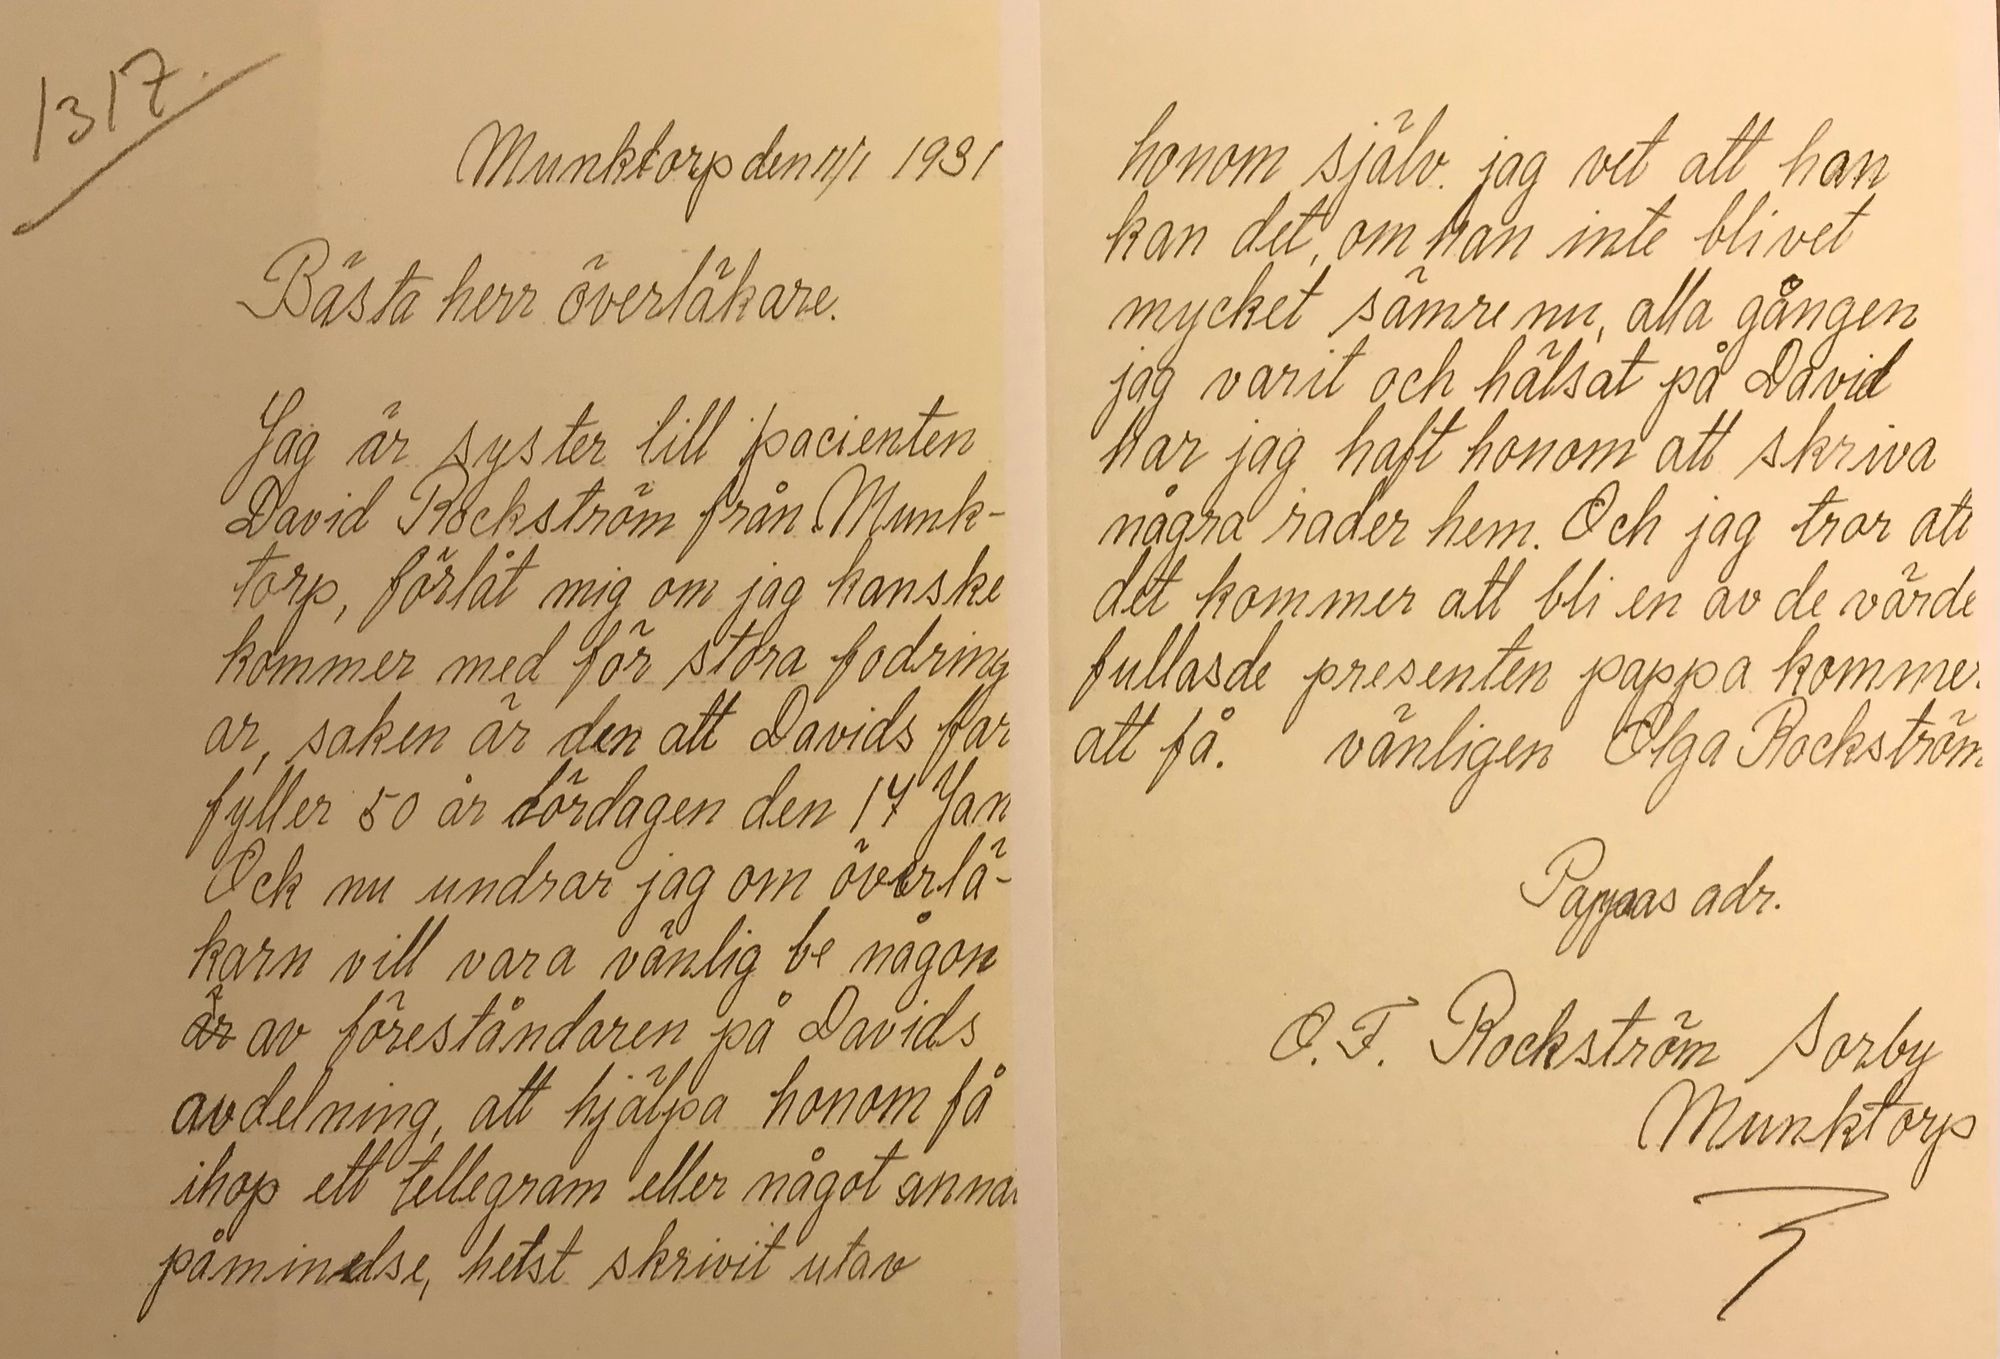 1317.
Munktorp den 11/1 1931
Bästa herr överläkare.
Jag är syster till pacienten
David Rockström från Munk-
torp, förlåt mig om jag kanske
kommer med för stora fodring
ar, saken är den att Davids far
fyller 50 år lördagen den 17 Jan
Ock nu undrar jag om överlä-
karn vill vara vänlig be någon
är av föreståndaren på Davids
avdelning, att hjälpa honom få
ihop ett tellegram eller något annat
påminelse, helst skrivit utav
honom själv. jag vet att han
kan det, om han inte blivet
mycket sämre nu, alla gången
jag varit och hälsat på David
har jag haft honom att skriva
några rader hem. Och jag tror att
det kommer att bli en av de värde
fullasde presenten pappa kommer
att få. vänligen Olga Rockström
Pappas adr.
O. F. Rockström Sorby
Munktorp